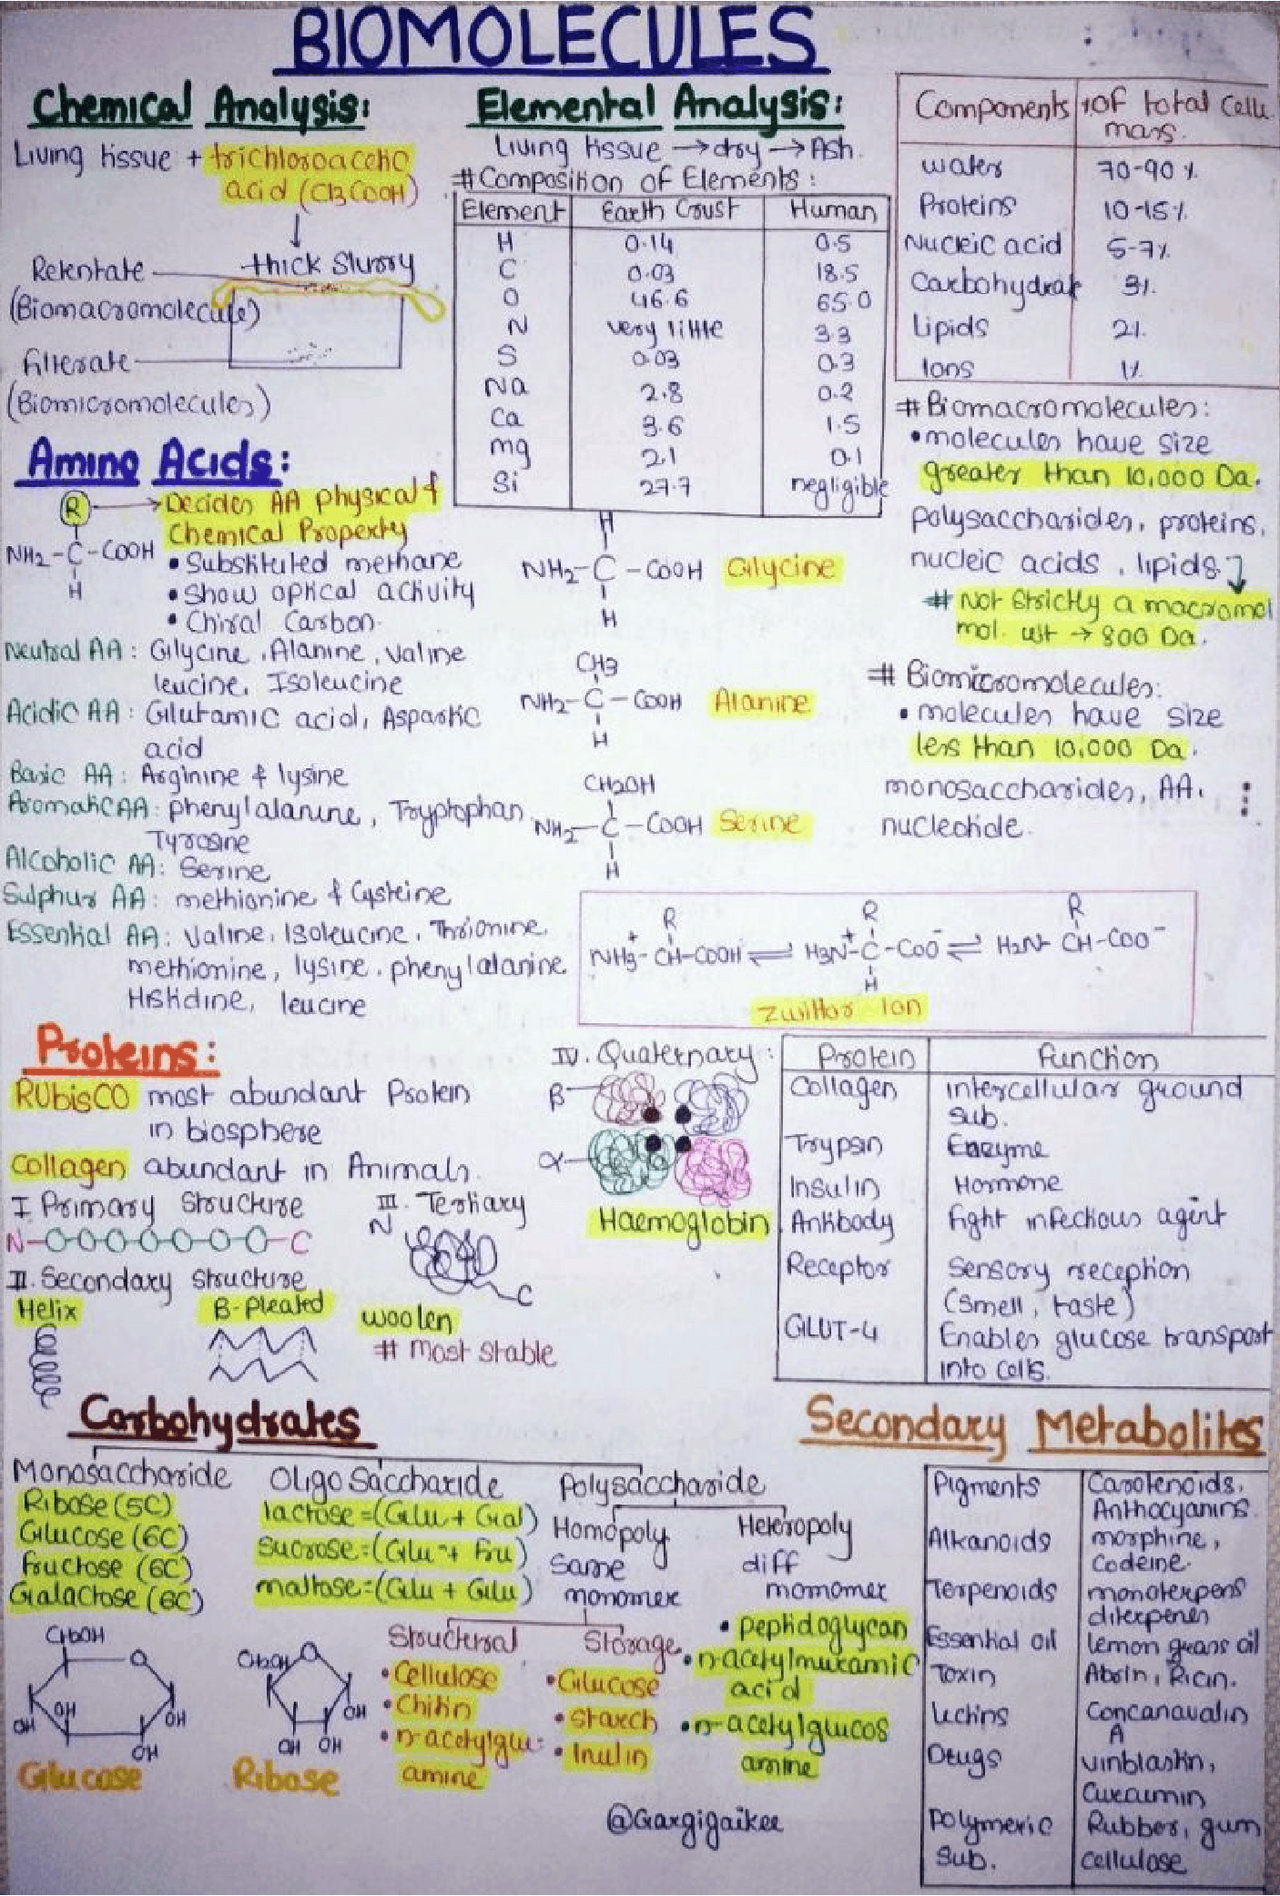 BIOMOLECULES
Chemical Analysis:
Living tissue + trichloroacetic
acid (Cl3COOH)
thick slurry
Retentate
(Biomacromolecule)
filterate
(Biomicromolecules)
Elemental Analysis:
Living tissue → dry → Ash.
# Composition of Elements:
Element Earth Crust Human
H 0.14 0.5
C 0.03 18.5
O 46.6 65.0
N very little 3.3
S 0.03 0.3
Na 2.8 0.2
Ca 3.6 1.5
mg 2.1 0.1
Si 27.7 negligible
Components % of total cellu
mass.
water 70-90%
Proteins 10-15%
Nucleic acid 5-7%
Carbohydrate 3%
Lipids 2%
Ions 1%
# Biomacromolecules:
• molecules have size
greater than 10,000 Da.
polysaccharides, proteins,
nucleic acids, lipids
# Not strictly a macromol
mol. wt → 800 Da.
# Biomicromolecules:
• molecules have size
less than 10,000 Da.
monosaccharides, AA.
nucleotide.
Amino Acids:
R → Decides AA physical &
Chemical Property
NH2-C-COOH
H
• Substituted methane
• Show optical activity
• Chiral Carbon.
Neutral AA: Glycine, Alanine, Valine
leucine, Isoleucine
Acidic AA: Glutamic acid, Aspartic
acid
Basic AA: Arginine & lysine
Aromatic AA: phenylalanine, Tryptophan,
Tyrosine
Alcoholic AA: Serine
Sulphur AA: methionine & Cysteine
Essential AA: Valine, Isoleucine, Thrionine,
methionine, lysine, phenylalanine
Histidine, leucine
H
NH2-C-COOH Glycine
H
CH3
NH2-C-COOH Alanine
H
CH2OH
NH2-C-COOH Serine
H
R R R
NH3+-CH-COOH ⇌ H3N+-C-COO- ⇌ H2N-CH-COO-
H
Zwittor Ion
Proteins:
RUbisCO most abundant Protein
in biosphere
Collagen abundant in Animals.
I. Primary Structure
N C
II. Secondary Structure
Helix B-Pleated
III. Tertiary
N
C
woolen
# most stable
IV. Quaternary:
β
α
Haemoglobin
Protein Function
Collagen intercellular ground
sub.
Trypsin Enzyme
Insulin Hormone
Antibody fight infectious agent
Receptor Sensory reception
(smell, taste)
GLUT-4 Enables glucose transport
into cells.
Carbohydrates
Monosaccharide OligoSaccharide Polysaccharide
Ribose (5C)
Glucose (6C)
fructose (6C)
Galactose (6C)
lactose = (Glu + Gal)
Sucrose = (Glu + Fru)
maltose = (Glu + Glu)
Homopoly Heteropoly
Same diff
monomer momomer
Structural Storage
• Cellulose
• Chitin
• n-acetylglu-
amine
• Glucose
• starch
• Inulin
• peptidoglycan
• n-acetylmuramic
acid
• n-acetylglucos
amine
CH2OH
O
OH
OH
OH
OH
Glucose
CH2OH
O
OH
OH
OH
Ribose
@Gargigaikee
Secondary Metabolites
Pigments Carotenoids,
Anthocyanins.
Alkanoids morphine,
Codeine.
Terpenoids monoterpens
diterpenes
Essential oil lemon grans oil
Toxin Abrin, Ricin.
Lectins Concanavalin
A
Drugs vinblastin,
Curcumin
Polymeric Rubber, gum
Sub. cellulose